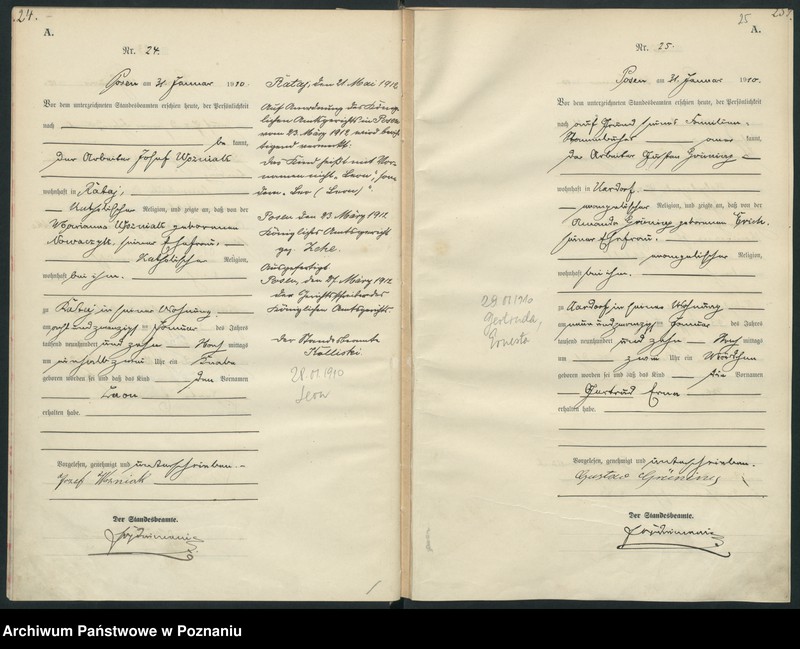 24.
A.
Nr. 24.
Posen am 31. Januar 1910.
Vor dem unterzeichneten Standesbeamten erschien heute, der Persönlichkeit
nach
be kannt,
der Arbeiter Josef Woźniak
wohnhaft in Rataj,
katholischer Religion, und zeigte an, daß von der
Marianna Woźniak geborenen
Nowaczyk, seiner Ehefrau,
katholischer Religion,
wohnhaft bei ihm,
zu Rataj in seiner Wohnung
am achtundzwanzigsten Januar des Jahres
tausend neunhundert und zehn Nachmittags
um einhalb zwei Uhr ein Knabe
geboren worden sei und daß das Kind den Vornamen
Leon
erhalten habe.
Vorgelesen, genehmigt und unterschrieben.
Józef Woźniak
Der Standesbeamte.
Rataj, den 21. Mai 1912
Auf Anordnung des König-
lichen Amtsgerichts in Posen
vom 23. März 1912 wird berich-
tigend vermerkt:
Das Kind heißt mit Vor-
namen nicht „Leon", son-
dern
Posen, den 23. März 1912
Königliches Amtsgericht
gez.
Ausgefertigt
Posen, den 27. März 1912
Der Gerichtsschreiber des
Königlichen Amtsgerichts
Der Standesbeamte
28 01 1910
Leon
25
A.
Nr. 25.
Posen am 31. Januar 1910.
Vor dem unterzeichneten Standesbeamten erschien heute, der Persönlichkeit
nach auf Grund seines Familien-
Stammbuches aner kannt,
der Arbeiter Gustav
wohnhaft in
evangelischer Religion, und zeigte an, daß von der
Amanda geborenen
seiner Ehefrau,
evangelischer Religion,
wohnhaft bei ihm,
zu in seiner Wohnung
am neunundzwanzigsten Januar des Jahres
tausend neunhundert und zehn Nachmittags
um zwei Uhr ein Mädchen
geboren worden sei und daß das Kind die Vornamen
Gertrud Erna
erhalten habe.
Vorgelesen, genehmigt und unterschrieben.
Gustav
Der Standesbeamte.
29 01 1910
Gertruda,
Archiwum Państwowe w Poznaniu